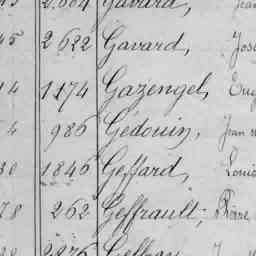 2.664 Gavard,
45 2622 Gavard, José
14 1174 Gazengel, Eug
4 986 Gédouin, Jean
30 1846 Geffard, Louis
78 262 Geffrault, Pierre
2276